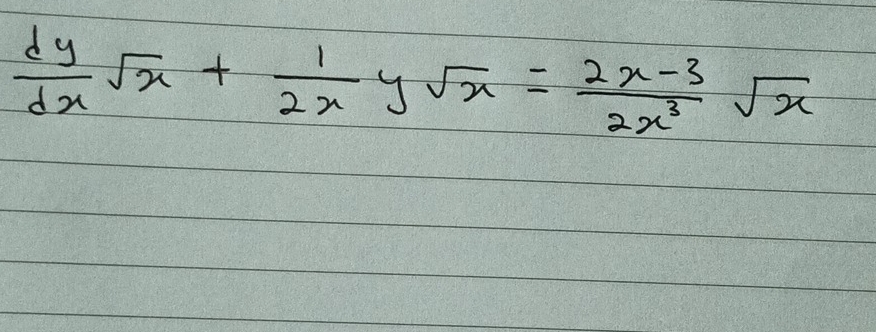 dy/dx √x + 1/2x y √x = 2x-3/2x³ √x